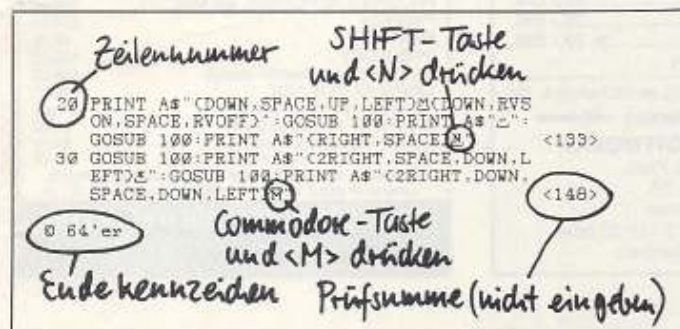 Zeilennummer
SHIFT-Taste
und <N> drücken
20 PRINT A$"(DOWN,SPACE,UP,LEFT)M(DOWN,RVS
ON,SPACE,RVOFF)":GOSUB 100:PRINT A$"L":
GOSUB 100:PRINT A$"(RIGHT,SPACE)N" <133>
30 GOSUB 100:PRINT A$"(2RIGHT,SPACE,DOWN,L
EFT)L":GOSUB 100:PRINT A$"(2RIGHT,DOWN,
SPACE,DOWN,LEFT)M" <148>
© 64'er
Commodore-Taste
und <M> drücken
Endekennzeichen
Prüfsumme (nicht eingeben)